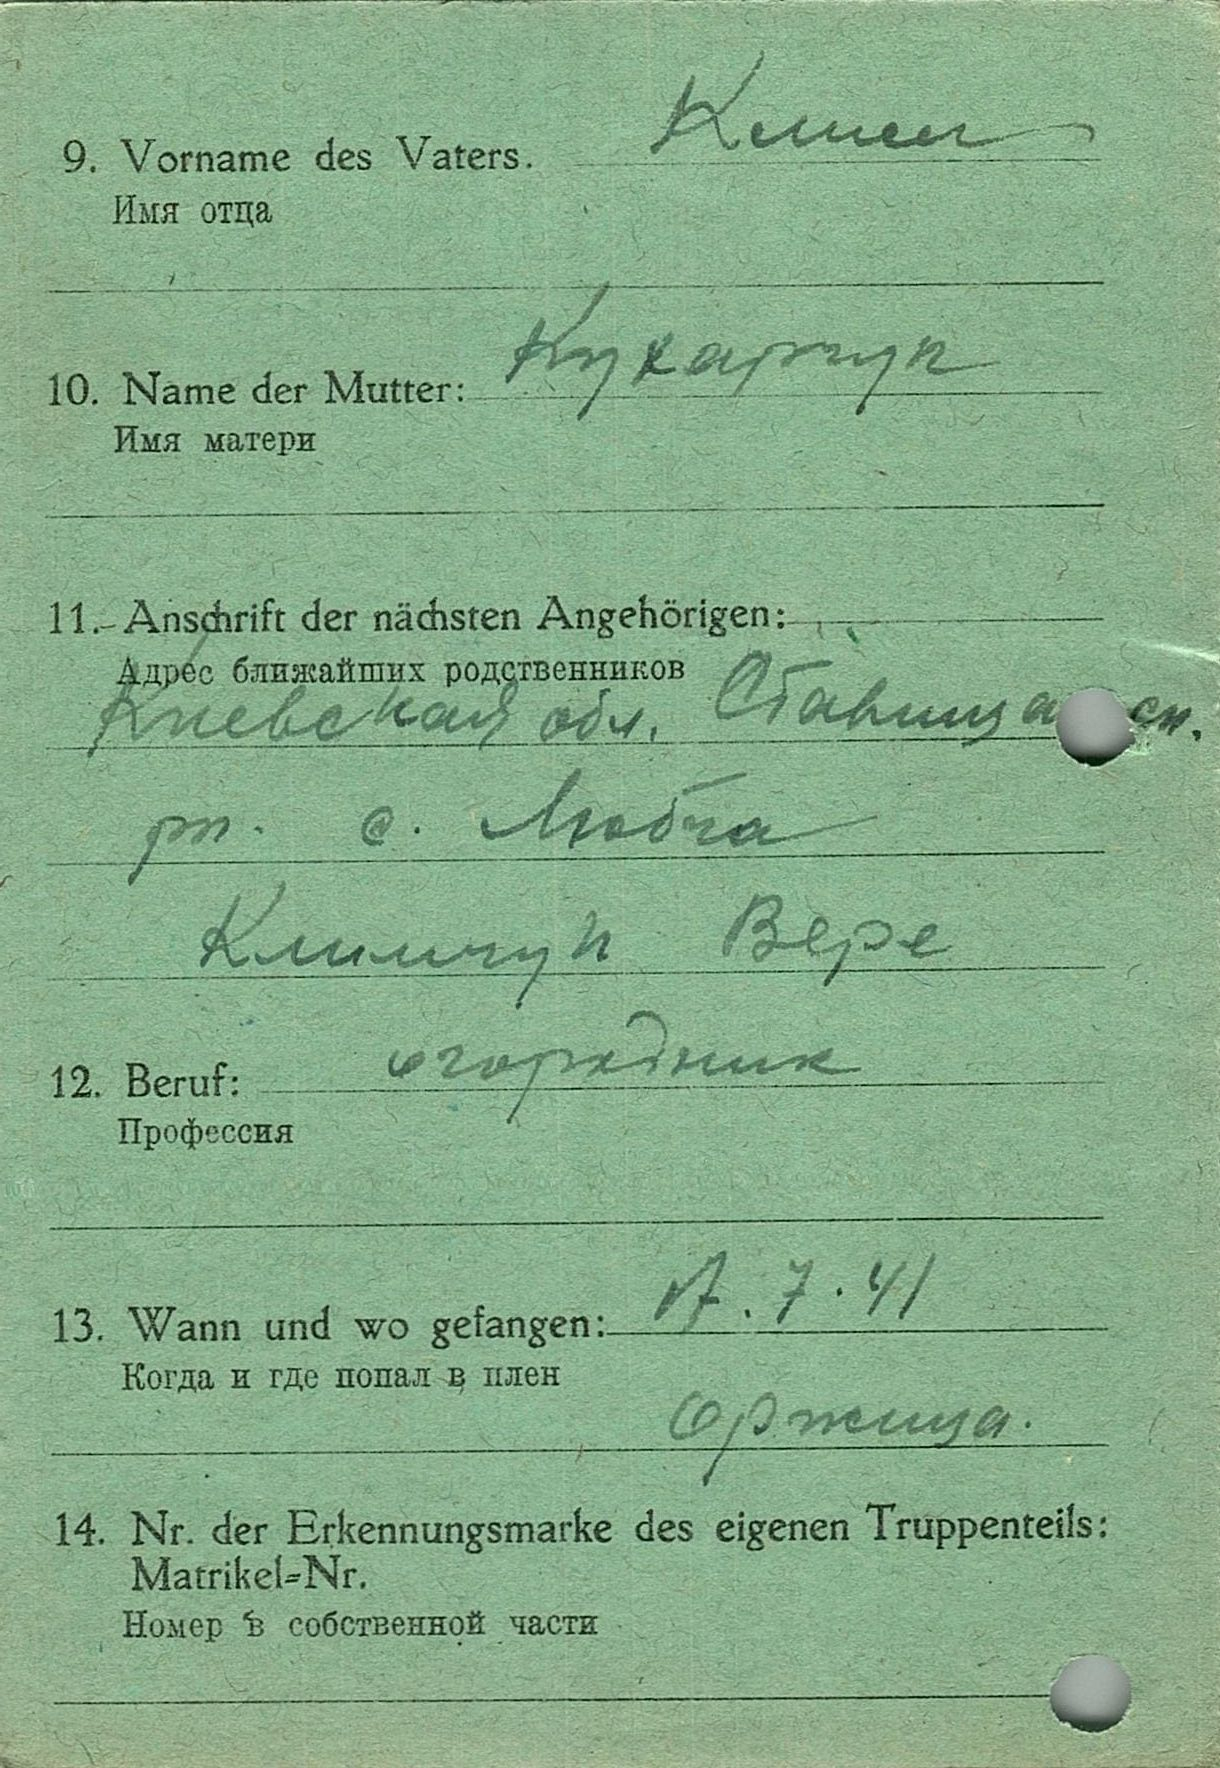 9. Vorname des Vaters. Клим
Имя отца
10. Name der Mutter: Кухарчук
Имя матери
11. Anschrift der nächsten Angehörigen:
Адрес ближайших родственников
Киевская обл. Ставища ск.
рн. с. Любча
Климчук Вере
12. Beruf: огородник
Профессия
13. Wann und wo gefangen: 7.41
Когда и где попал в плен
Оржица.
14. Nr. der Erkennungsmarke des eigenen Truppenteils:
Matrikel-Nr.
Номер в собственной части